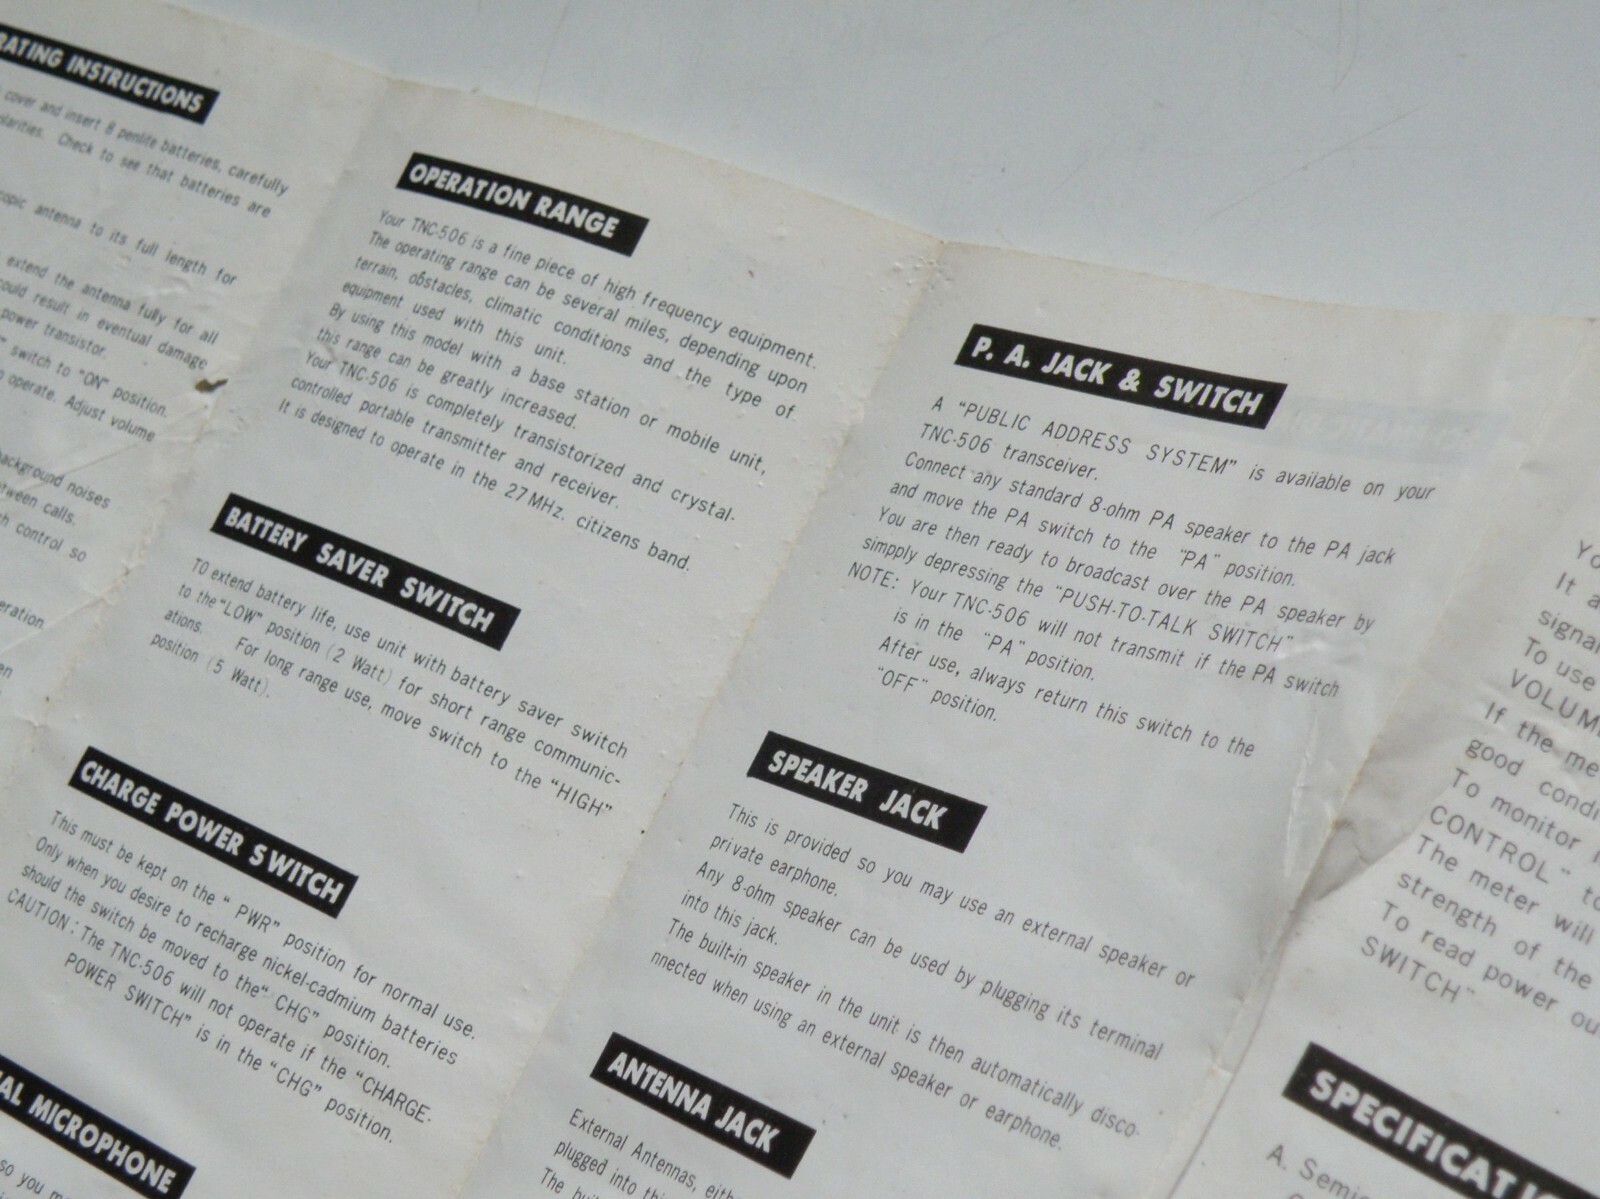 RATING INSTRUCTIONS
cover and insert 8 penlife batteries, carefully
Check to see that batteries are
antenna to its full length for
extend the antenna fully for all
could result in eventual damage
power transistor.
switch to "ON" position.
operate. Adjust volume
background noises
between calls.
control so
OPERATION RANGE
Your TNC-506 is a fine piece of high frequency equipment.
The operating range can be several miles, depending upon
terrain, obstacles, climatic conditions and the type of
equipment used with this unit.
By using this model with a base station or mobile unit,
this range can be greatly increased.
Your TNC-506 is completely transistorized and crystal-
controlled portable transmitter and receiver.
It is designed to operate in the 27 MHz. citizens band.
BATTERY SAVER SWITCH
TO extend battery life, use unit with battery saver switch
to the "LOW" position (2 Watt) for short range communic-
ations. For long range use, move switch to the "HIGH"
position (5 Watt).
CHARGE POWER SWITCH
This must be kept on the " PWR" position for normal use.
Only when you desire to recharge nickel-cadmium batteries
should the switch be moved to the " CHG" position.
CAUTION : The TNC-506 will not operate if the "CHARGE-
POWER SWITCH" is in the "CHG" position.
MICROPHONE
so you
P. A. JACK & SWITCH
A "PUBLIC ADDRESS SYSTEM" is available on your
TNC-506 transceiver.
Connect any standard 8-ohm PA speaker to the PA jack
and move the PA switch to the "PA" position.
You are then ready to broadcast over the PA speaker by
simpply depressing the "PUSH-TO-TALK SWITCH"
NOTE: Your TNC-506 will not transmit if the PA switch
is in the "PA" position.
After use, always return this switch to the
"OFF" position.
SPEAKER JACK
This is provided so you may use an external speaker or
private earphone.
Any 8-ohm speaker can be used by plugging its terminal
into this jack.
The built-in speaker in the unit is then automatically disco-
nnected when using an external speaker or earphone.
ANTENNA JACK
External Antennas,
plugged into
The
signal
To use
If the
good
To monitor
CONTROL " to
The meter will
strength of the
To read power
SWITCH"
A.